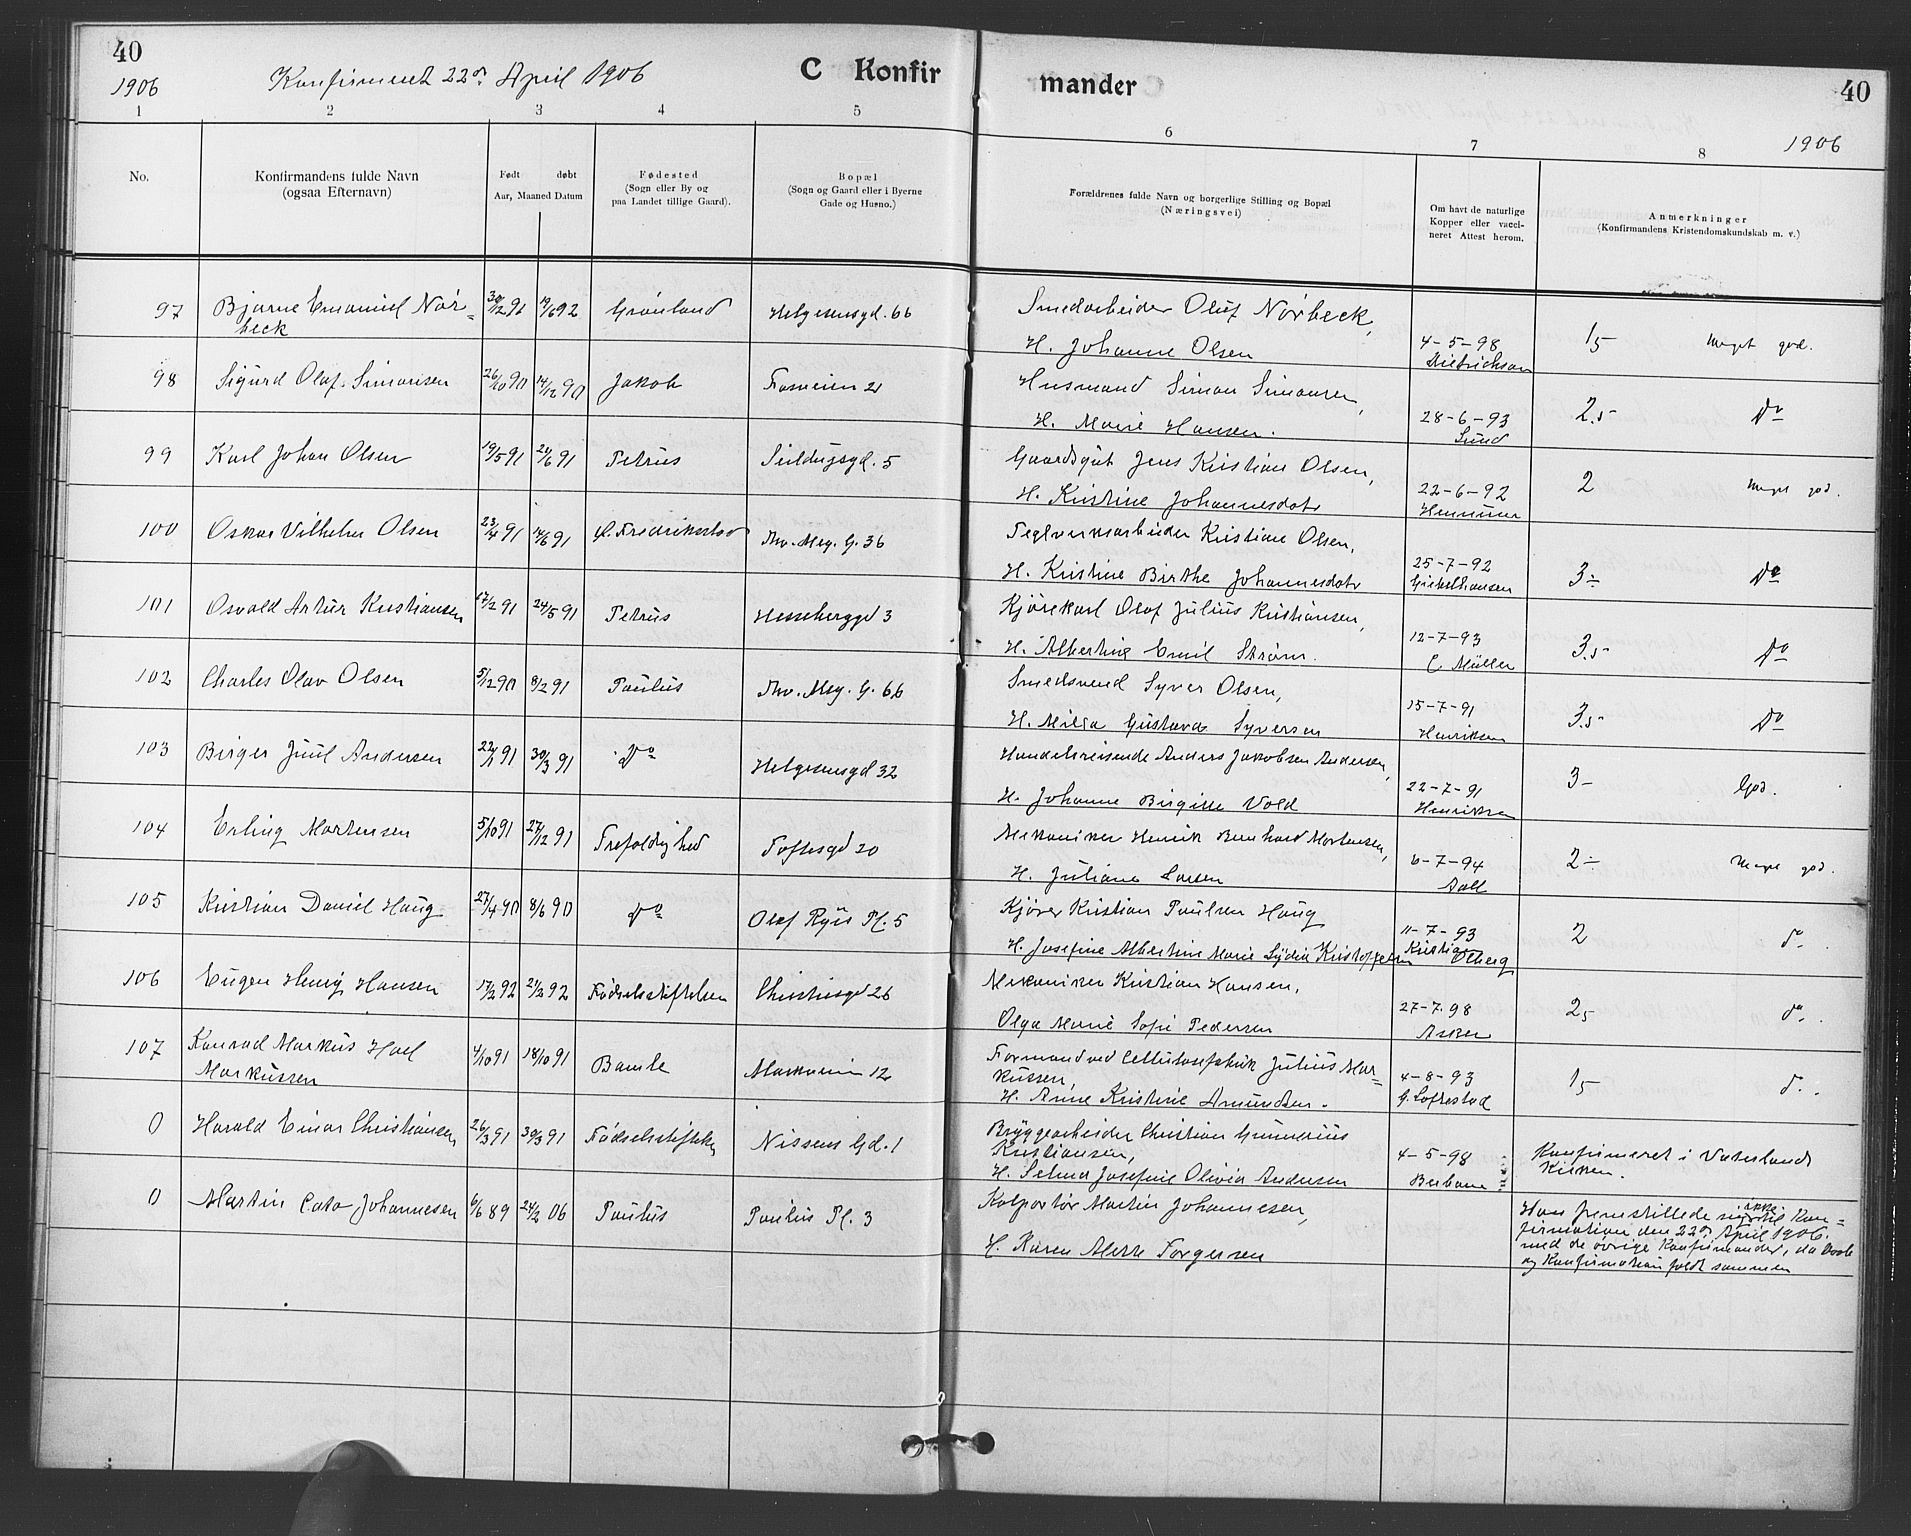 40
1906
Konfirmeret 22de April 1906
C Konfir
mander
40
1906
1 2 3 4 5 6 7 8
No.
Konfirmandens fulde Navn
(ogsaa Efternavn)
Født døbt
Aar, Maaned Datum
Fødested
(Sogn eller By og
paa Landet tillige Gaard).
Bopæl
(Sogn og Gaard eller i Byerne
Gade og Husno.)
Forældrenes fulde Navn og borgerlige Stilling og Bopæl
(Næringsvei)
Om havt de naturlige
Kopper eller vacci-
neret Attest herom.
Anmerkninger
(Konfirmandens Kristendomskundskab m. v.)
97 Bjarne Emanuel Nør= 30/12 91 19/6 92 Grønland Helgesensgd. 66 Smedarbeider Oluf Nørbeck,
beck H. Johanne Olsen 4-5-98 15 Meget god.
Dietrichson
98 Sigurd Olaf Simonsen 26/10 90 14/12 90 Jakob 21 Husmand Simon Simonsen,
H. Marie Hansen. 28-6-93 2.5 Do
Lund
99 Karl Johan Olsen 19/5 91 21/6 91 Petrus Seildugsgd. 5 Gaardsgut Jens Kristian Olsen,
H. Kristine Johannesdatr 22-6-92 2 Meget god.
100 Oskar Vilhelm Olsen 23/4 91 14/6 91 Fredrikstad Thv. Mey. G. 36 Teglverksarbeider Kristian Olsen,
H. Kristine Birthe Johannesdatr 25-7-92 3÷ Do
101 Osvald Artur Kristiansen 17/2 91 24/5 91 Petrus Hesseberggd 3 Kjørekarl Olaf Julius Kristiansen,
H. Albertine Emil Strøm. 12-7-93 3.5 Do
C. Müller
102 Charles Olav Olsen 5/12 90 8/2 91 Paulus Thv. Mey. G. 66 Smedsvend Syver Olsen,
H. Milla Gustava Syversen 15-7-91 3.5 Do
Henriksen
103 Birger Juul Andersen 22/1 91 30/3 91 Do Helgesensgd 32 Handelsreisende Anders Jakobsen Andersen,
H. Johanne Birgitte Vold 22-7-91 3- God.
Henriksen
104 Erling Mortensen 5/10 91 27/12 91 Trefoldighed Toftesgd 20 Mekaniker Henrik Bernhard Mortensen,
H. Juliane Larsen 6-7-94 2÷ Meget god.
105 Kristian Daniel Haug 27/4 90 8/6 90 Do Olaf Ryes Pl. 5 Kjører Kristian Paulsen Haug
H. Josefine Albertine Marie Lydia Kristoffersen 11-7-93 2 do.
106 Eugen Henry Hansen 17/2 92 21/2 92 Fødselsstiftelsen Christiesgd 26 Mekaniker Kristian Hansen,
Olga Marie Sofie Pedersen 27-7-98 25 do.
107 Konrad Markus Hael 4/10 91 18/10 91 Bamle 12 Formand ved Cellulosefabrik Julius Mar=
Markussen kussen, 4-8-93 15 do.
H. Anne Kristine Amundsen. G. Loftestad
0 Harald Einar Christiansen 26/3 91 30/3 91 Fødselsstiftels Nissens Gd. 1 Bryggearbeider Christian Gunnerius
Kristiansen, 4-5-98 Konfirmeret i Vaterlands
H. Selma Josefine Olivia Andersen Kirken.
0 Martin Cato Johannesen 6/6 89 24/2 06 Paulus Paulus Pl. 3 Kolportør Martin Johannesen,
H. Karen Alette Torgersen
Han fremstillede sig ikke til Kon=
firmation den 22de April 1906
med de øvrige Konfirmander, da Daab
og Konfirmation faldt sammen